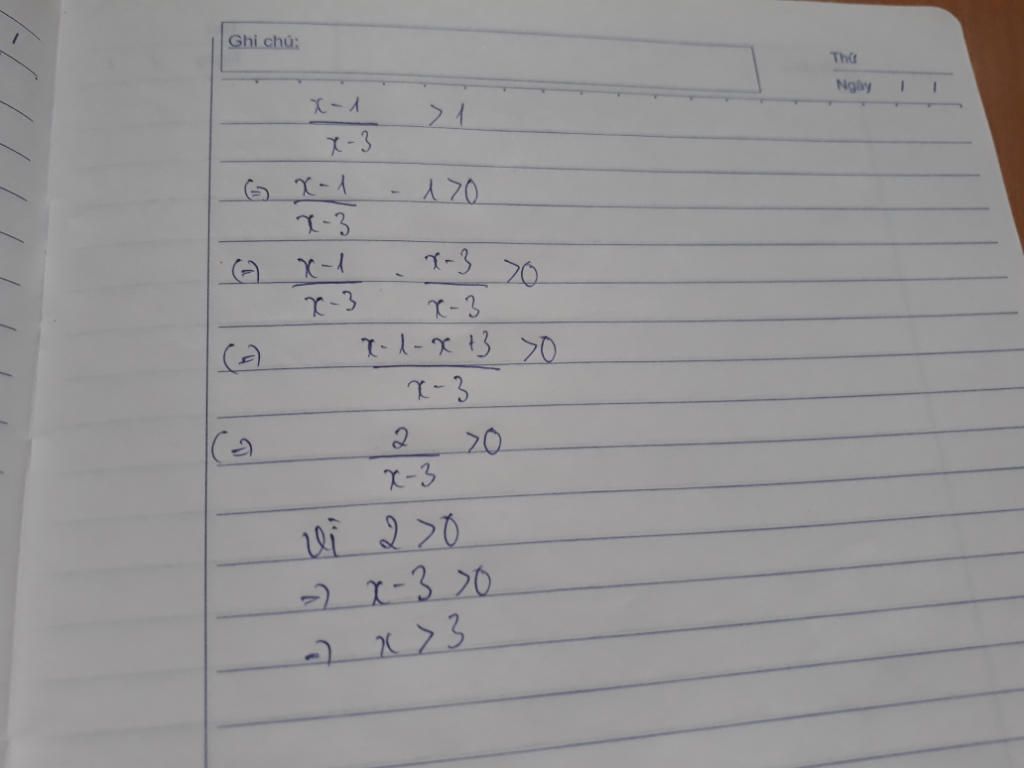 Ghi chú:
Thứ
Ngày / /
x-1/x-3 >1
(=) x-1/x-3 - 1>0
(=) x-1/x-3 - x-3/x-3 >0
(=) x-1-x+3/x-3 >0
(=) 2/x-3 >0
Vì 2>0
=) x-3>0
=) x>3